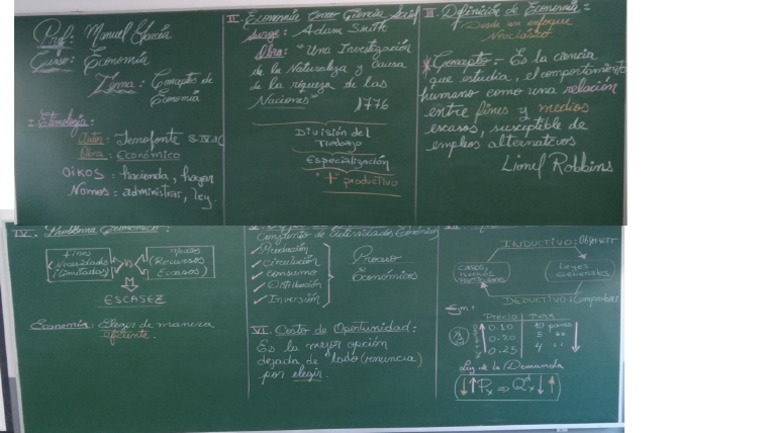 Prof: Manuel García
Curso: Economía
Tema: Concepto de
Economía
I. Etimología:
Autor: Jenofonte S. IV a.C
Obra: Económico
OIKOS: hacienda, hogar
Nomos: administrar, ley.
II. Economía como Ciencia Social
Surge: Adam Smith
Obra: "Una Investigación
de la Naturaleza y causa
de la riqueza de las
Naciones" 1776
División del
Trabajo
Especialización
+ productivo
III. Definición de Economía:
Desde un enfoque
Neoclásico
* Concepto:- Es la ciencia
que estudia, el comportamiento
humano como una relación
entre fines y medios
escasos, susceptible de
empleos alternativos
Lionel Robbins
IV. Problema Económico:
Fines
Necesidades
(ilimitadas)
vs
Medios
(Recursos
Escasos)
ESCASEZ
Economía: Elegir de manera
eficiente.
Conjunto de Actividades Económicas
✓ Producción
✓ Circulación
✓ Consumo
✓ Distribución
✓ Inversión
Proceso
Económicos
VI. Costo de Oportunidad:
Es la mejor opción
dejada de lado (renuncia)
por elegir.
INDUCTIVO:
Casos,
hechos
Particulares
Leyes
Generales
DEDUCTIVO: Comprobar
Ejm:
Precio
0.10 10 panes
0.20 5 "
0.25 4 "
Ley de la Demanda
↓↑Px ⇒ Qdx↓↑